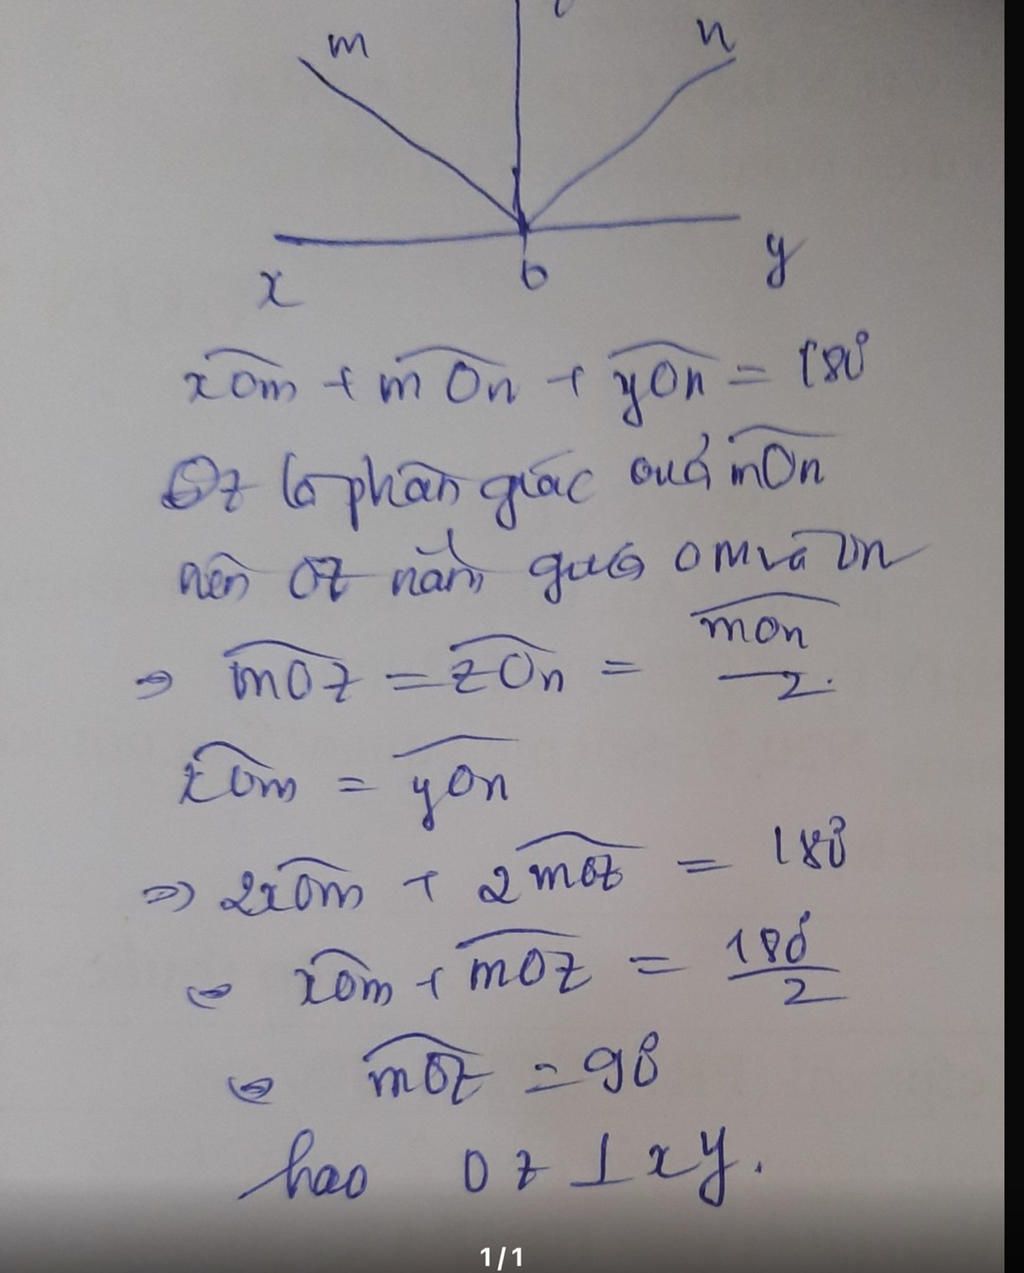 m n
x 0 y
xOm + mOn + yOn = 180°
Oz là phân giác của mOn
nên Oz nằm giữa Om và On
⇒ mOz = zOn = mOn / 2
xOm = yOn
⇒ 2xOm + 2mOz = 180°
⇔ xOm + mOz = 180° / 2
⇔ mOz = 90°
hao Oz ⊥ xy.
1/1